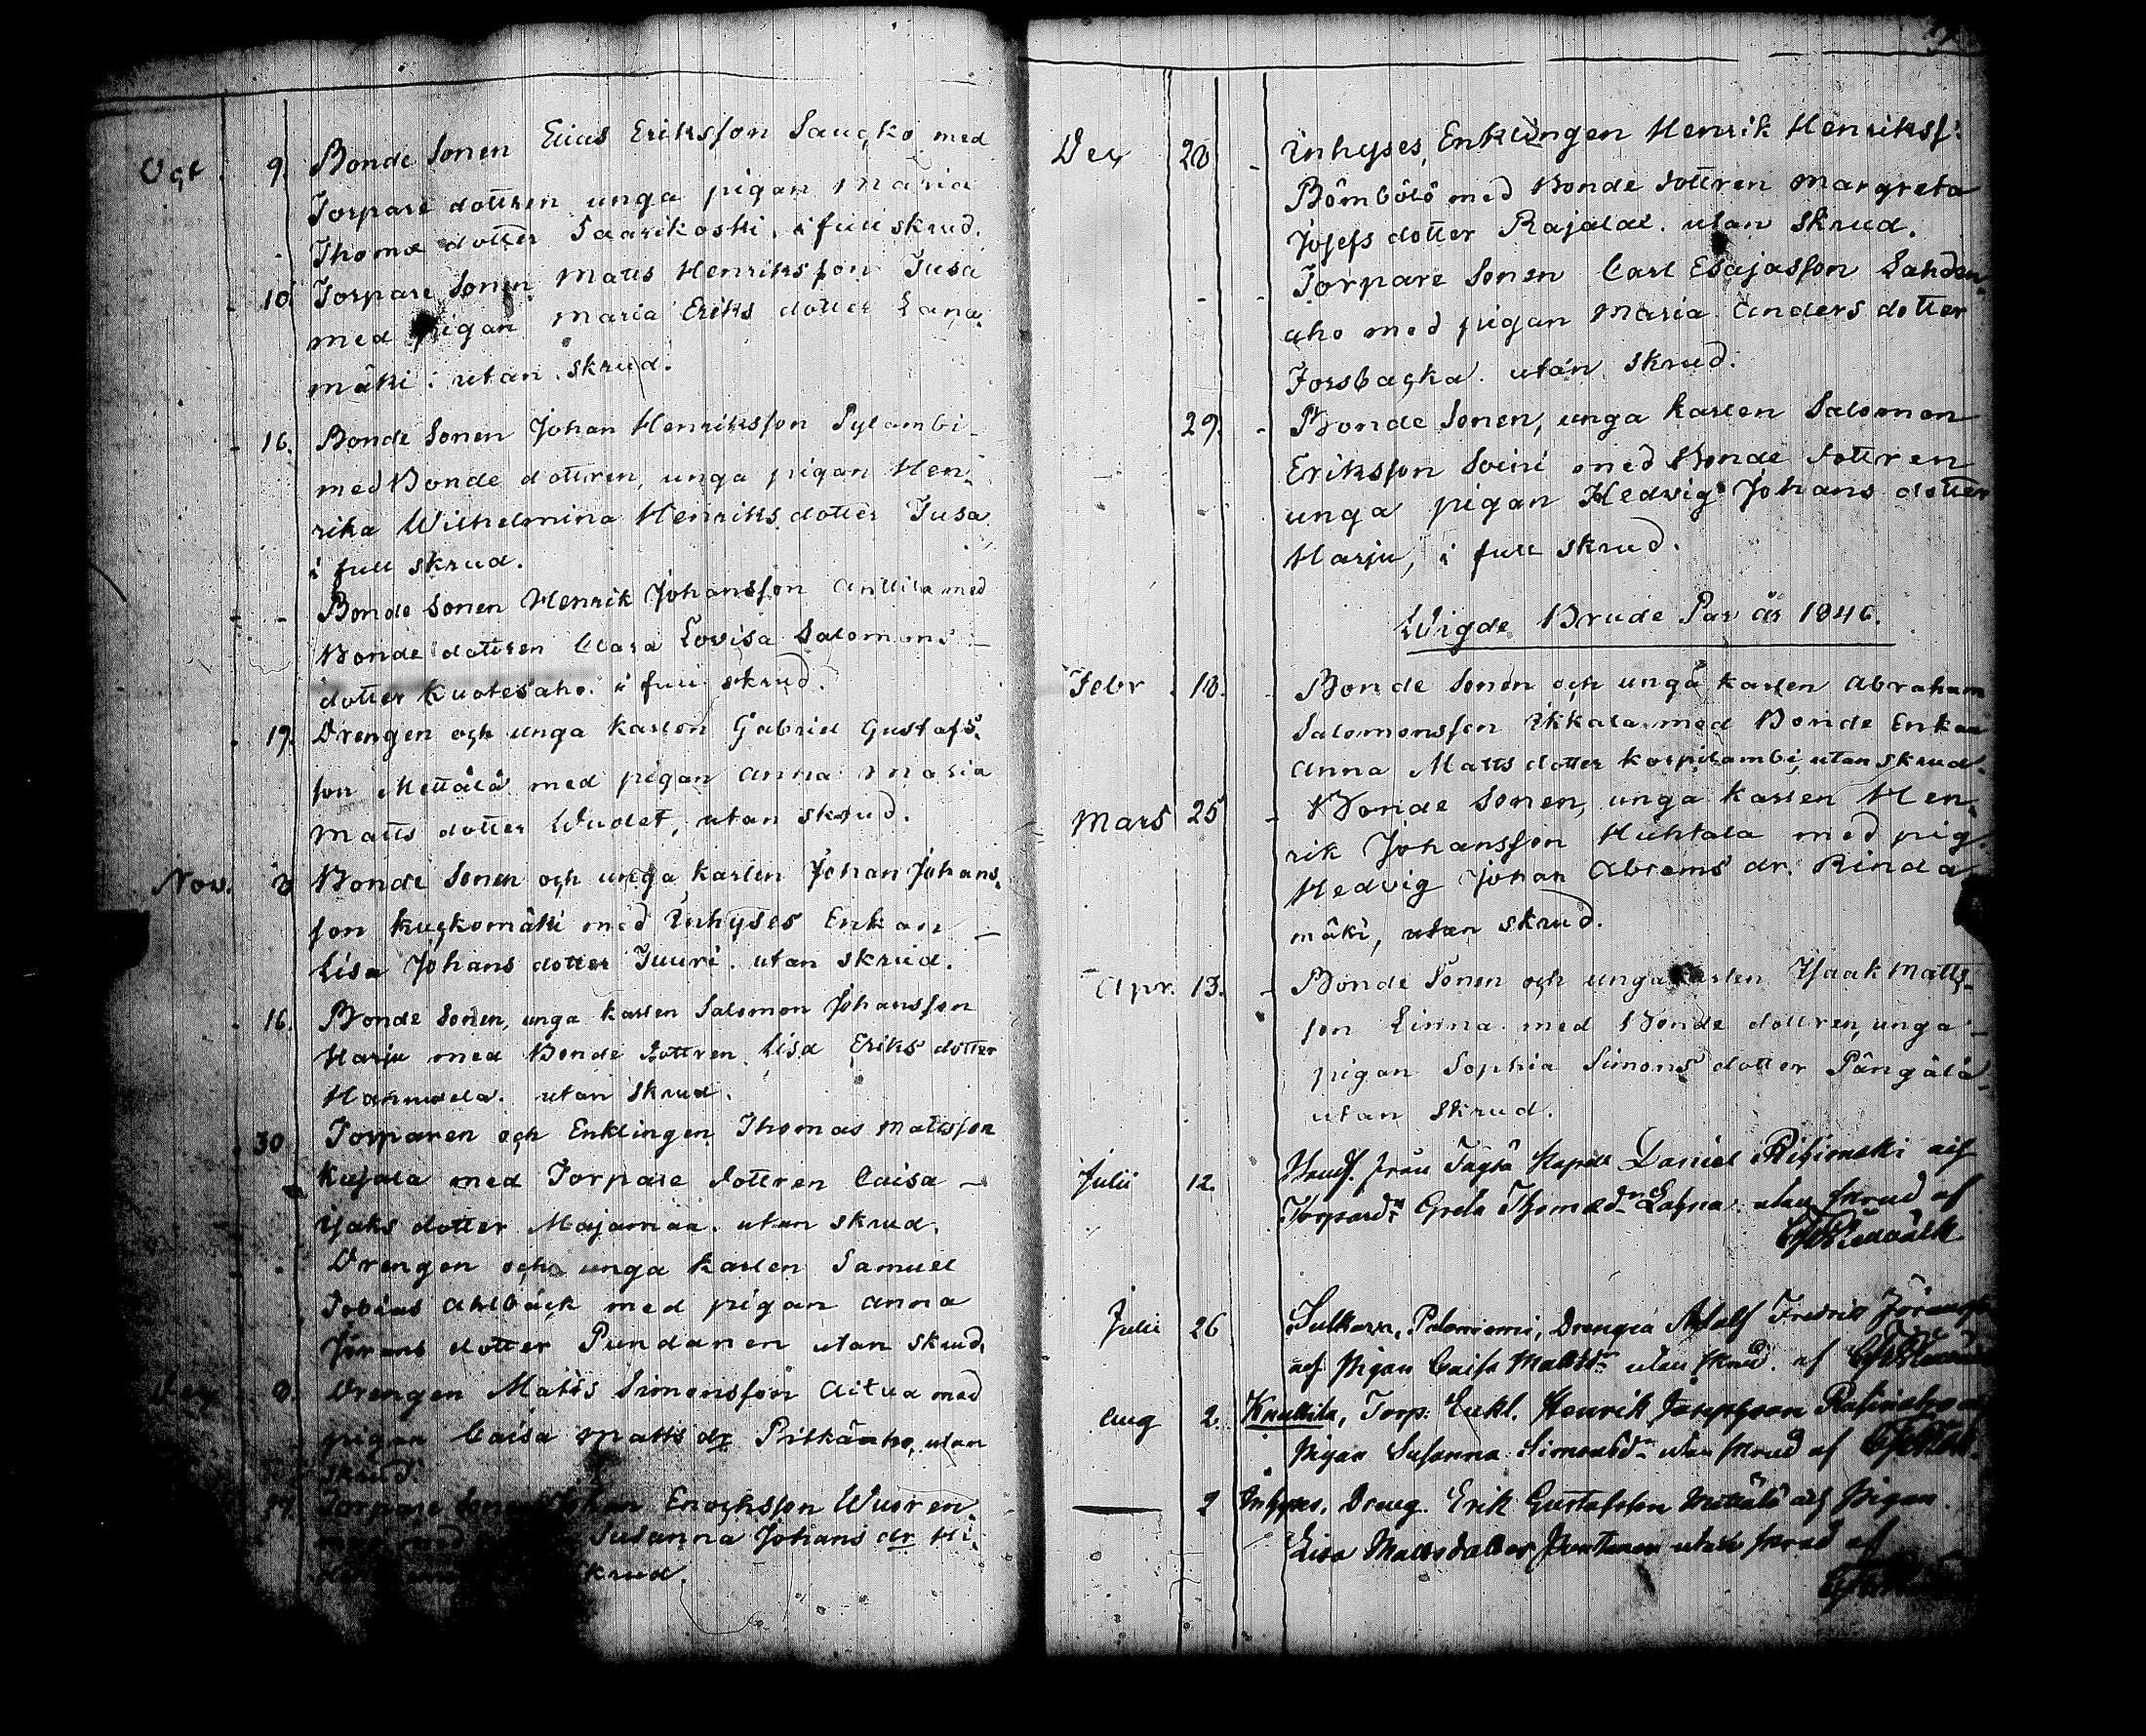 Oct. 9. Bonde Sonen Elias Eriksson Saucko med
Torpare dottren unga pigan Maria
Thomæ dotter Saarikoski. i full skrud.
- 10. Torpare Sonen Matts Henriksson Jusa
med pigan Maria Eriks dotter Lana-
mäki: utan skrud.
- 16. Bonde Sonen Johan Henriksson Sylambi
med Bonde dottren, unga pigan Hen-
rika Wilhelmina Henriks dotter Jusa
i full skrud.
- - Bonde Sonen Henrik Johansson Anttila med
Bonde dottren Clara Lovisa Salomons-
dotter Kuotesaho. i full skrud.
- 19. Drengen och unga karlen Gabriel Gustafs-
son Mettälä med pigan Anna Maria
Matts dotter Wudet, utan skrud.
Nov. 2 Bonde Sonen och unga karlen Johan Johans-
son Kuckomäki med Inhyses Enkan
Lisa Johans dotter Juuri. utan skrud.
- 16. Bonde Sonen, unga karlen Salomon Johansson
Harju med Bonde dottren Lisa Eriks dotter
Hannula. utan skrud.
- 30. Torparen och Enklingen Thomas Mattsson
Kujala med Torpare dottren Caisa
Isaks dotter Majamaa. utan skrud.
- - Drengen och unga karlen Samuel
Tobias Ahlbäck med pigan Anna
Jörans dotter Pundanen utan skrud.
Dec. 8. Drengen Matts Simonsson Aitua med
pigan Caisa Matts dr Pitkäaho, utan
skrud.
Torpare Sonen Johan Enochsson Wuoren-
Susanna Johans dr Hi-
skrud.
Dec 28 - Inhyses Enklingen Henrik Henrikss:
Bömbölö med Bonde dottren Margreta
Josefs dotter Rajalal. utan skrud.
- - Torpare Sonen Carl Esajasson Lahden-
aho med pigan Maria Anders dotter
Forsbacka. utan skrud.
29. - Bonde Sonen, unga karlen Salomon
Eriksson Soini med Bonde dottren
unga pigan Hedvig Johans dotter
Harju, i full skrud.
Wigde Brude Par år 1846.
Febr. 18. - Bonde Sonen och unga karlen Abraham
Salomonsson Ikkala med Bonde Enkan
Anna Matts dotter Korpilambi, utan skrud.
Mars 25 - Bonde Sonen, unga karlen Hen-
rik Johansson Huhtala med pig.
Hedvig Johan Abrams dr. Rinda-
mäki, utan skrud.
Apr. 13. - Bonde Sonen och unga karlen Isaak Matts-
son Linna med Bonde dottren, unga
pigan Sophia Simons dotter Pängälä
utan skrud.
Julii 12. från Töysä Kapell Daniel och
Torpard. Greta Thomæd. utan skrud af
Julii 26 Drengen Adolf Fredrik
och Pigan Caisa Mattsdr utan skrud. af
Aug 2. Knuttila, Torp. Enkl. Henrik Josephsson
Pigan Susanna Simonsdr utan skrud af
— 2 Inhyses. Dreng. Erik Gustafsson Mettälä och Pigan
Lisa Mattsdotter utan skrud af